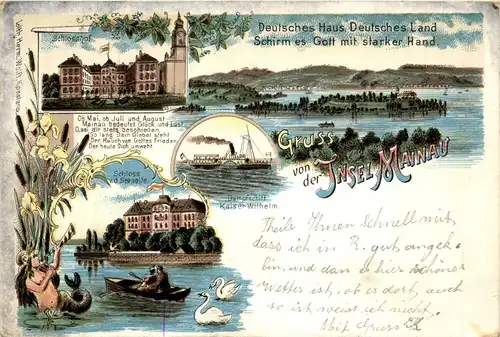 Deutsches Haus, Deutsches Land
Schirm es Gott mit starker Hand.
Schlosshof.
Ob Mai, ob Juli und August
Mainau bedeutet Glück und Lust
Dass dir stets beschieden
So lang Dein Giebel steht
Der Hauch von Gottes Frieden
Der heute Dich umweht.
Gruss
von
der INSEL MAINAU
Schloss
v.d. Seeseite
Dampfschiff
Kaiser Wilhelm.
Theile Ihnen Schnell mit,
dass ich in R. gut angek.
bin, und dass es hier schöner
Wetter ist, ob es dort, auch
so ist weiss ich nicht.
Mit Gruss